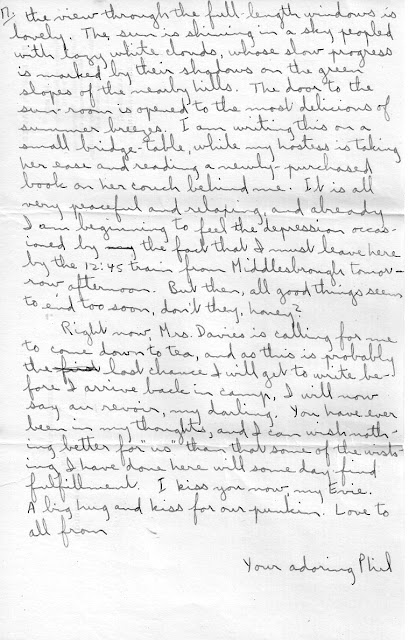 17. the view through the full-length windows is
lovely. The sun is shining in a sky peopled
with lazy white clouds, whose slow progress
is marked by their shadows on the green
slopes of the nearby hills. The door to the
sun-room is opened to the most delicious of
summer breezes. I am writing this on a
small bridge-table, while my hostess is taking
her ease and reading a newly-purchased
book on her couch behind me. It is all
very peaceful and relaxing, and already
I am beginning to feel the depression occas-
ioned by my the fact that I must leave here
by the 12:45 train from Middlesbrough tomor-
row afternoon. But then, all good things seem
to end too soon, don't they, honey?
Right now, Mrs. Davies is calling for me
to come down to tea, and as this is probably
the last chance I will get to write be-
fore I arrive back in camp, I will now
say au revoir, my darling. You have ever
been in my thoughts, and I can wish noth-
ing better for "us" than that some of the wish-
ing I have done here will some day find
fulfillment. I kiss you now my Evie.
A big hug and kiss for our punkin. Love to
all from
Your adoring Phil